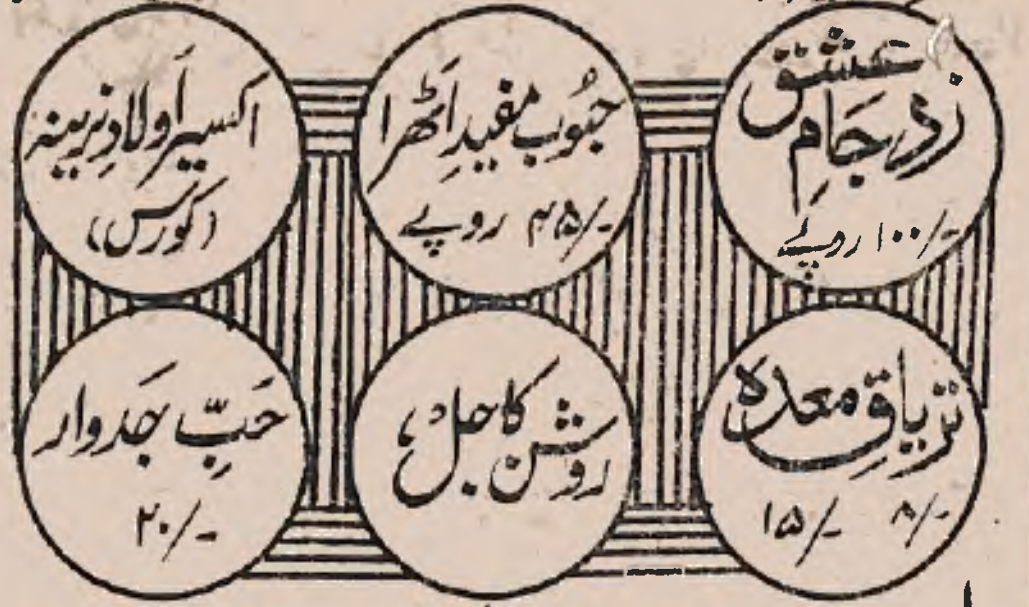 زد جام عشق
۱۰۰/- روپے
حبُوب مفید اٹھرا
۴۵/- روپے
اکسیر اولادِ نرینہ
(کورس)
تریاقِ معدہ
۸/- ۱۵/-
روشن کاجل
حَبِّ جَدوار
۲۰/-